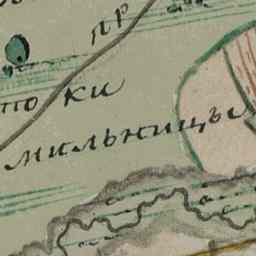 пр
токи
мильницы